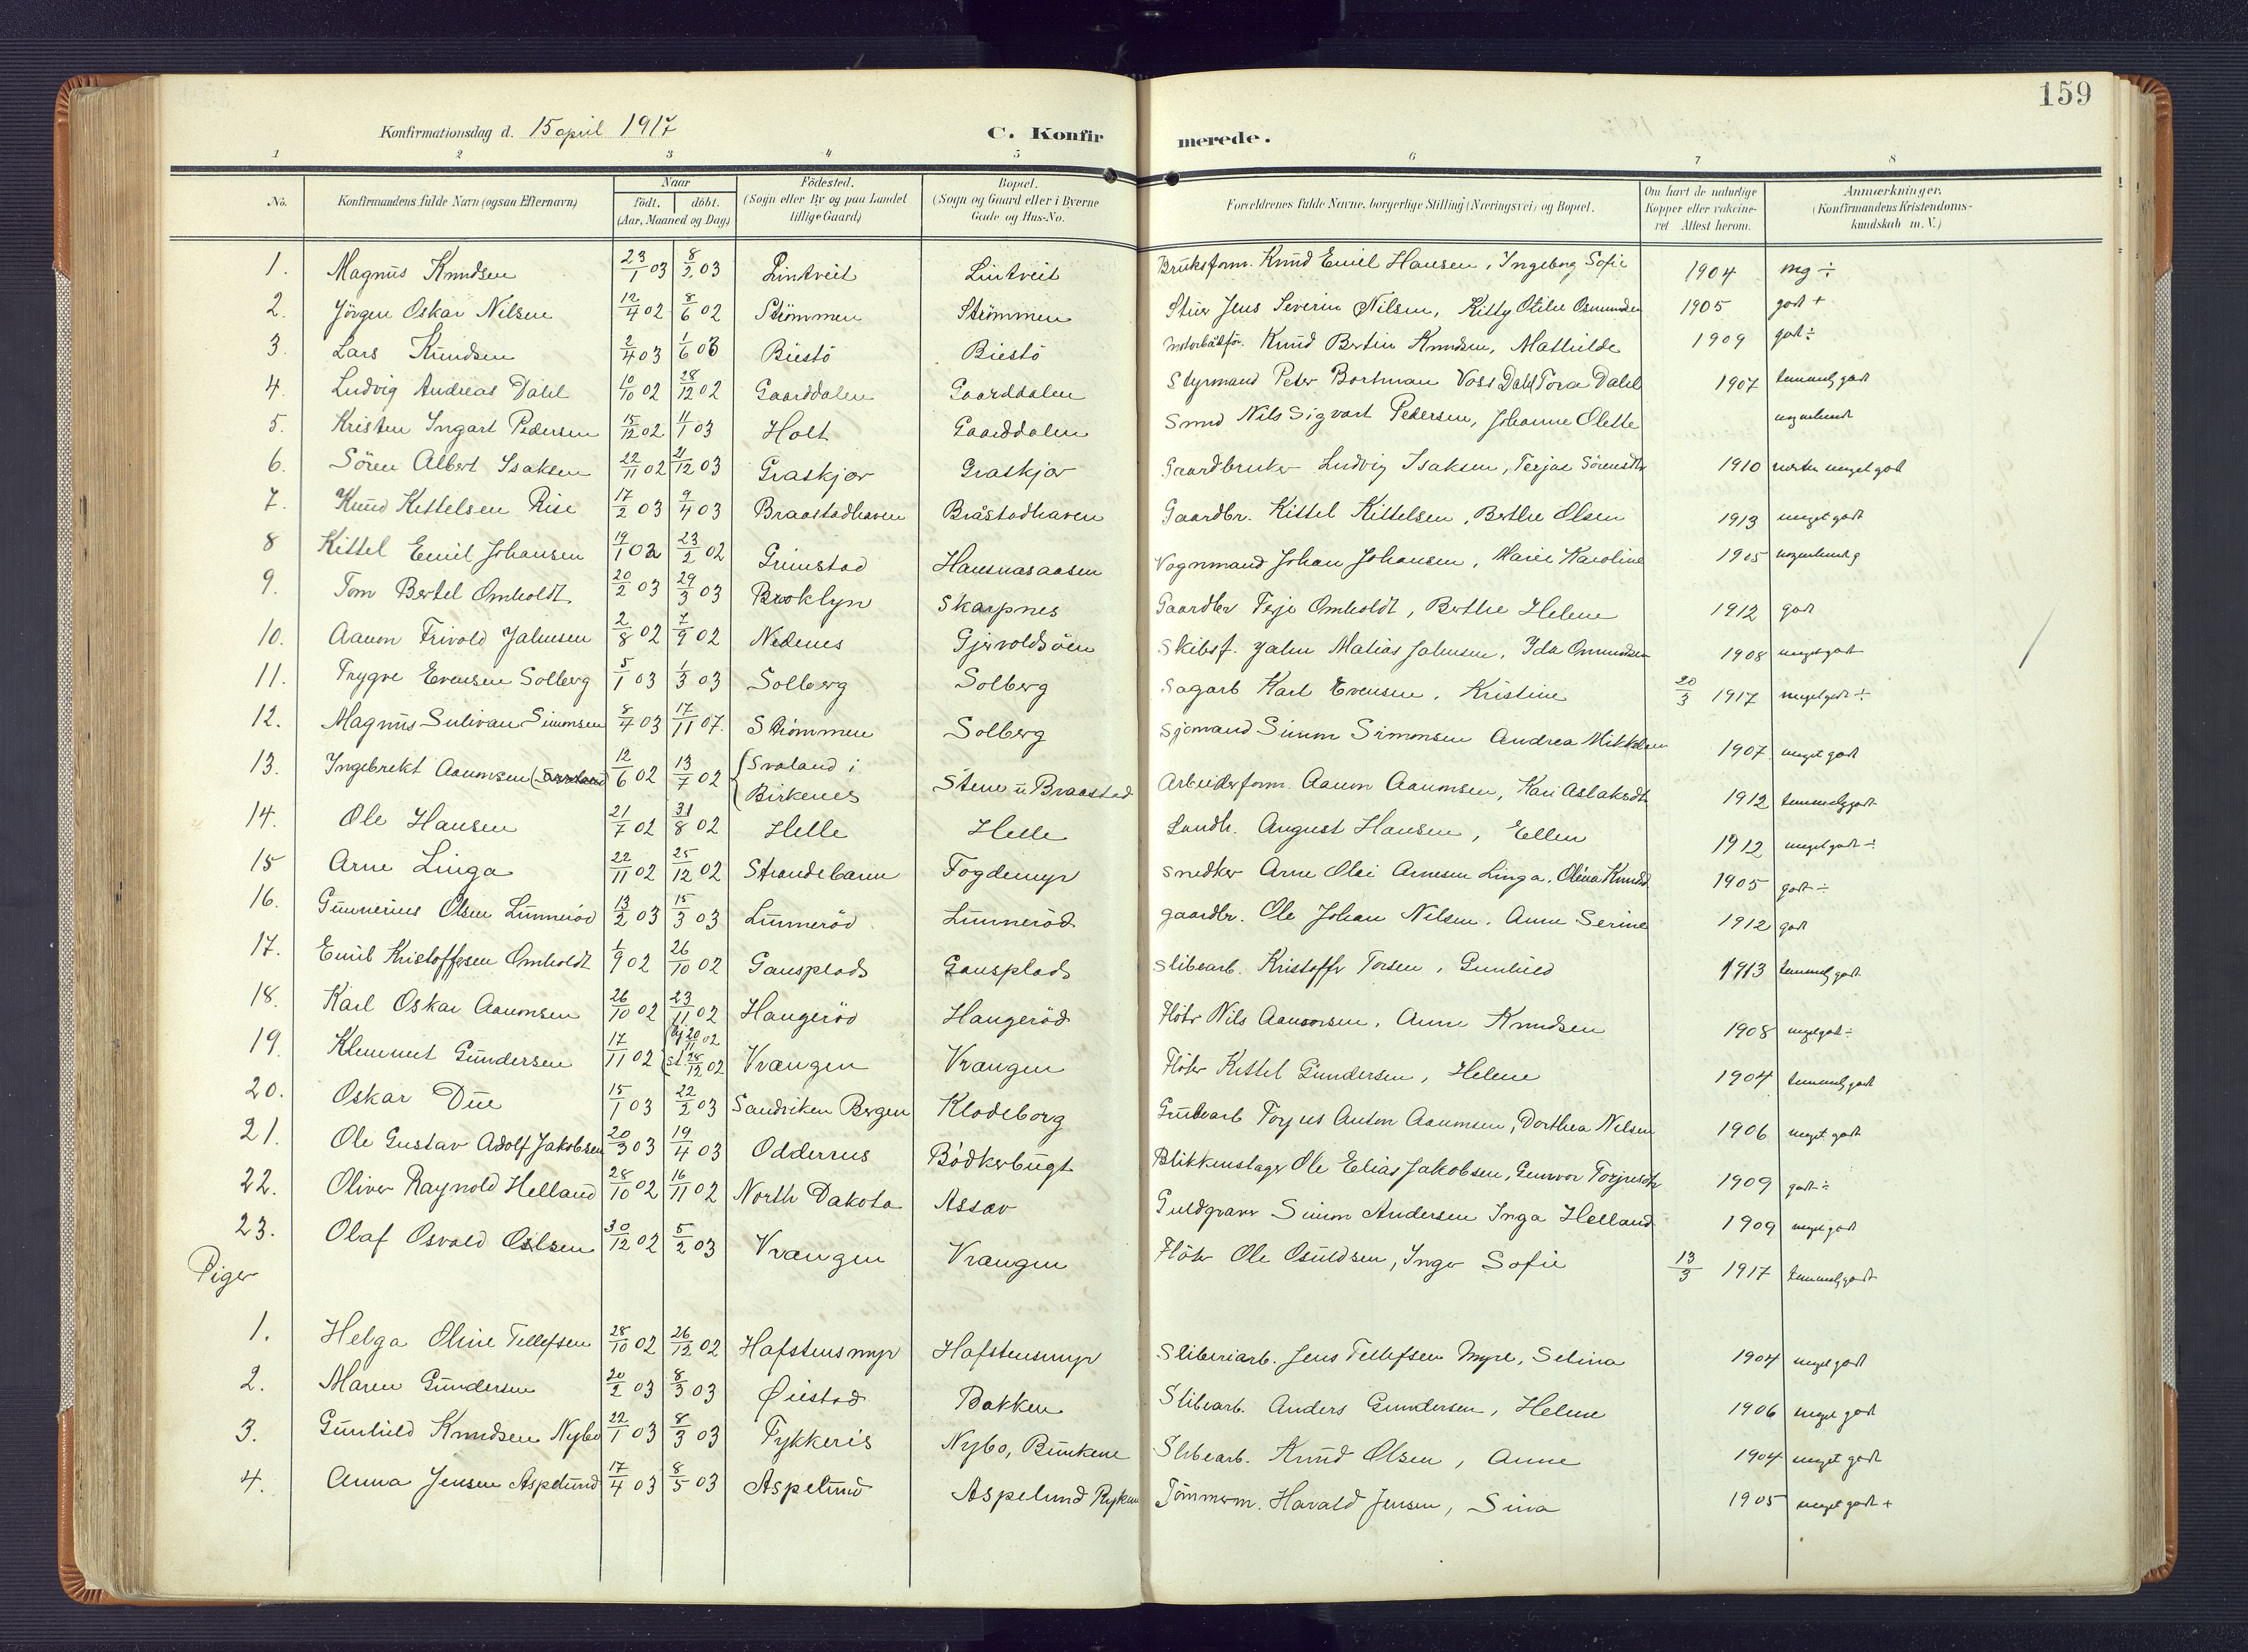 159
Konfirmationsdag d. 15 april 1917
C. Konfirmerede.
1 2 3 4 5 6 7 8
No. Konfirmandens fulde Navn (ogsaa Efternavn) Naar födt. döbt. (Aar, Maaned og Dag) Födested. (Sogn eller By og paa Landet tillige Gaard) Bopæl. (Sogn og Gaard eller i Byerne Gade og Hus-No. Forældrenes fulde Navne, borgerlige Stilling (Næringsvei) og Bopæl. Om havt de naturlige Kopper eller vakcineret Attest herom. Anmærkninger. (Konfirmandens Kristendomskundskab m. V.)
1. Magnus Knudsen 23/1 03 8/2 03 Lintveit Lintveit Bruksform. Knud Emil Hansen, Ingeborg Sofie 1904 mg ÷
2. Jörgen Oskar Nilsen 12/4 02 8/6 02 Strömmen Strömmen Stuer Jens Severin Nilsen, Kitty Otilie Osmundsen 1905 godt +
3. Lars Knudsen 2/4 03 1/6 03 Biestö Biestö Motorbåtför. Knud Bertin Knudsen, Mathilde 1909 godt ÷
4. Ludvig Andreas Dahl 10/10 02 28/12 02 Gaarddalen Gaarddalen Styrmand Peter Bortman Voss Dahl, Tora Dahl 1907 temmelig godt
5. Kristen Ingart Pedersen 15/12 02 11/1 03 Holt Gaarddalen Smed Nils Sigvart Pedersen, Johanne Olette
6. Sören Albert Isaksen 22/11 02 21/12 03 Graskjær Graskjær Gaardbruker Ludvig Isaksen, Terjae Sörensdtr 1910 næsten meget godt
7. Knud Kettelsen Rise 17/2 03 9/4 03 Braastadhaven Bråstadhaven Gaardbr. Kittel Kittelsen, Berthe Olsen 1913 meget godt
8 Kittel Emil Johansen 19/1 02 23/2 02 Grimstad Hausnasaasen Vognmand Johan Johansen, Marie Karoline 1905
9. Tom Bertel Omholdt 20/2 03 29/3 03 Brooklyn Skarpnes Gaardbr Terje Omholdt, Berthe Helene 1912 godt
10. Aanon Frivold Jahnsen 2/8 02 7/9 02 Nedenes Gjervoldsöen Skibsf. Jahn Matias Jahnsen, Ida Omundsen 1908 meget godt
11. Trygve Evensen Solberg 5/1 03 1/3 03 Solberg Solberg Sagarb Karl Evensen, Kristine 20/3 1917 meget godt ÷
12. Magnus Sulivan Simonsen 8/4 03 17/11 07. Strömmen Solberg Sjömand Simon Simonsen Andrea Mikkelsen 1907 meget godt
13. Ingebrekt Aanonsen (Svaland 12/6 02 13/7 02 {Svaland i Birkenes Stene u Braastad Arbeiderform. Aanon Aanonsen, Kari Aslaksdtr 1912 temmelig godt
14. Ole Hansen 21/7 02 31/8 02 Helle Helle Landh. August Hansen, Ellen 1912 meget godt ÷
15 Arne Linga 22/11 02 25/12 02 Strandebarm Fogdemyr Snedker Arne Olai Arnesen Linga, Olena Knudsd. 1905 godt ÷
16. Gunnerius Olsen Lunneröd 13/2 03 15/3 03 Lunneröd Lunneröd gaardbr. Ole Johan Nilsen, Anne Serine 1912 godt
17. Emil Kristoffersen Omholdt 1/9 02 26/10 02 Gausplads Gausplads Slibearb. Kristoffr Torsen, Gunhild 1913 temmelig godt
18. Karl Oskar Aanonsen 26/10 02 23/11 02 Haugeröd Haugeröd Flöter Nils Aanonsen, Anne Knudsen 1908 meget godt ÷
19. Klemmet Gundersen 17/11 02 (hj 20/11 02 st 28/12 02 Vrangen Vrangen Flöter Kittel Gundersen, Helene 1904 temmelig godt
20. Oskar Due 15/1 03 22/2 03 Sandviken Bergen Klodeborg Grubearb Torjus Anton Aanonsen, Dorthea Nilsen 1906 meget godt
21. Ole Gustav Adolf Jakobsen 20/3 03 19/4 03 Oddernes Bödkerbugt Blikkenslager Ole Elias Jakobsen, Gunvor Torjusdtr 1909 godt ÷
22. Oliver Raynold Helland 28/10 02 16/11 02 North Dakota Assæv Guldgraver Simon Andersen Inga Helland 1909 meget godt
23. Olaf Osvald Oslsen 30/12 02 5/2 03 Vrangen Vrangen Flöter Ole Osuldsen, Inger Sofie 13/3 1917 temmelig godt
Piger
1. Helga Oline Tellefsen 28/10 02 26/12 02 Hafstensmyr Hafstensmyr Sliberiarb. Jens Tellefsen Myre, Selina 1904 meget godt
2. Maren Gundersen 20/2 03 8/3 03 Øiestad Bakken Slibearb. Anders Gundersen, Helene 1906 meget godt
3. Gunhild Knudsen Nybo 22/1 03 8/3 03 Tykkeris Nybo, Bunkene Slibearb. Knud Olsen, Anne 1904 meget godt
4. Anna Jensen Aspelund 17/4 03 8/5 03 Aspelund Aspelund Ryken Tömmerm. Harald Jensen, Sina 1905 meget godt +